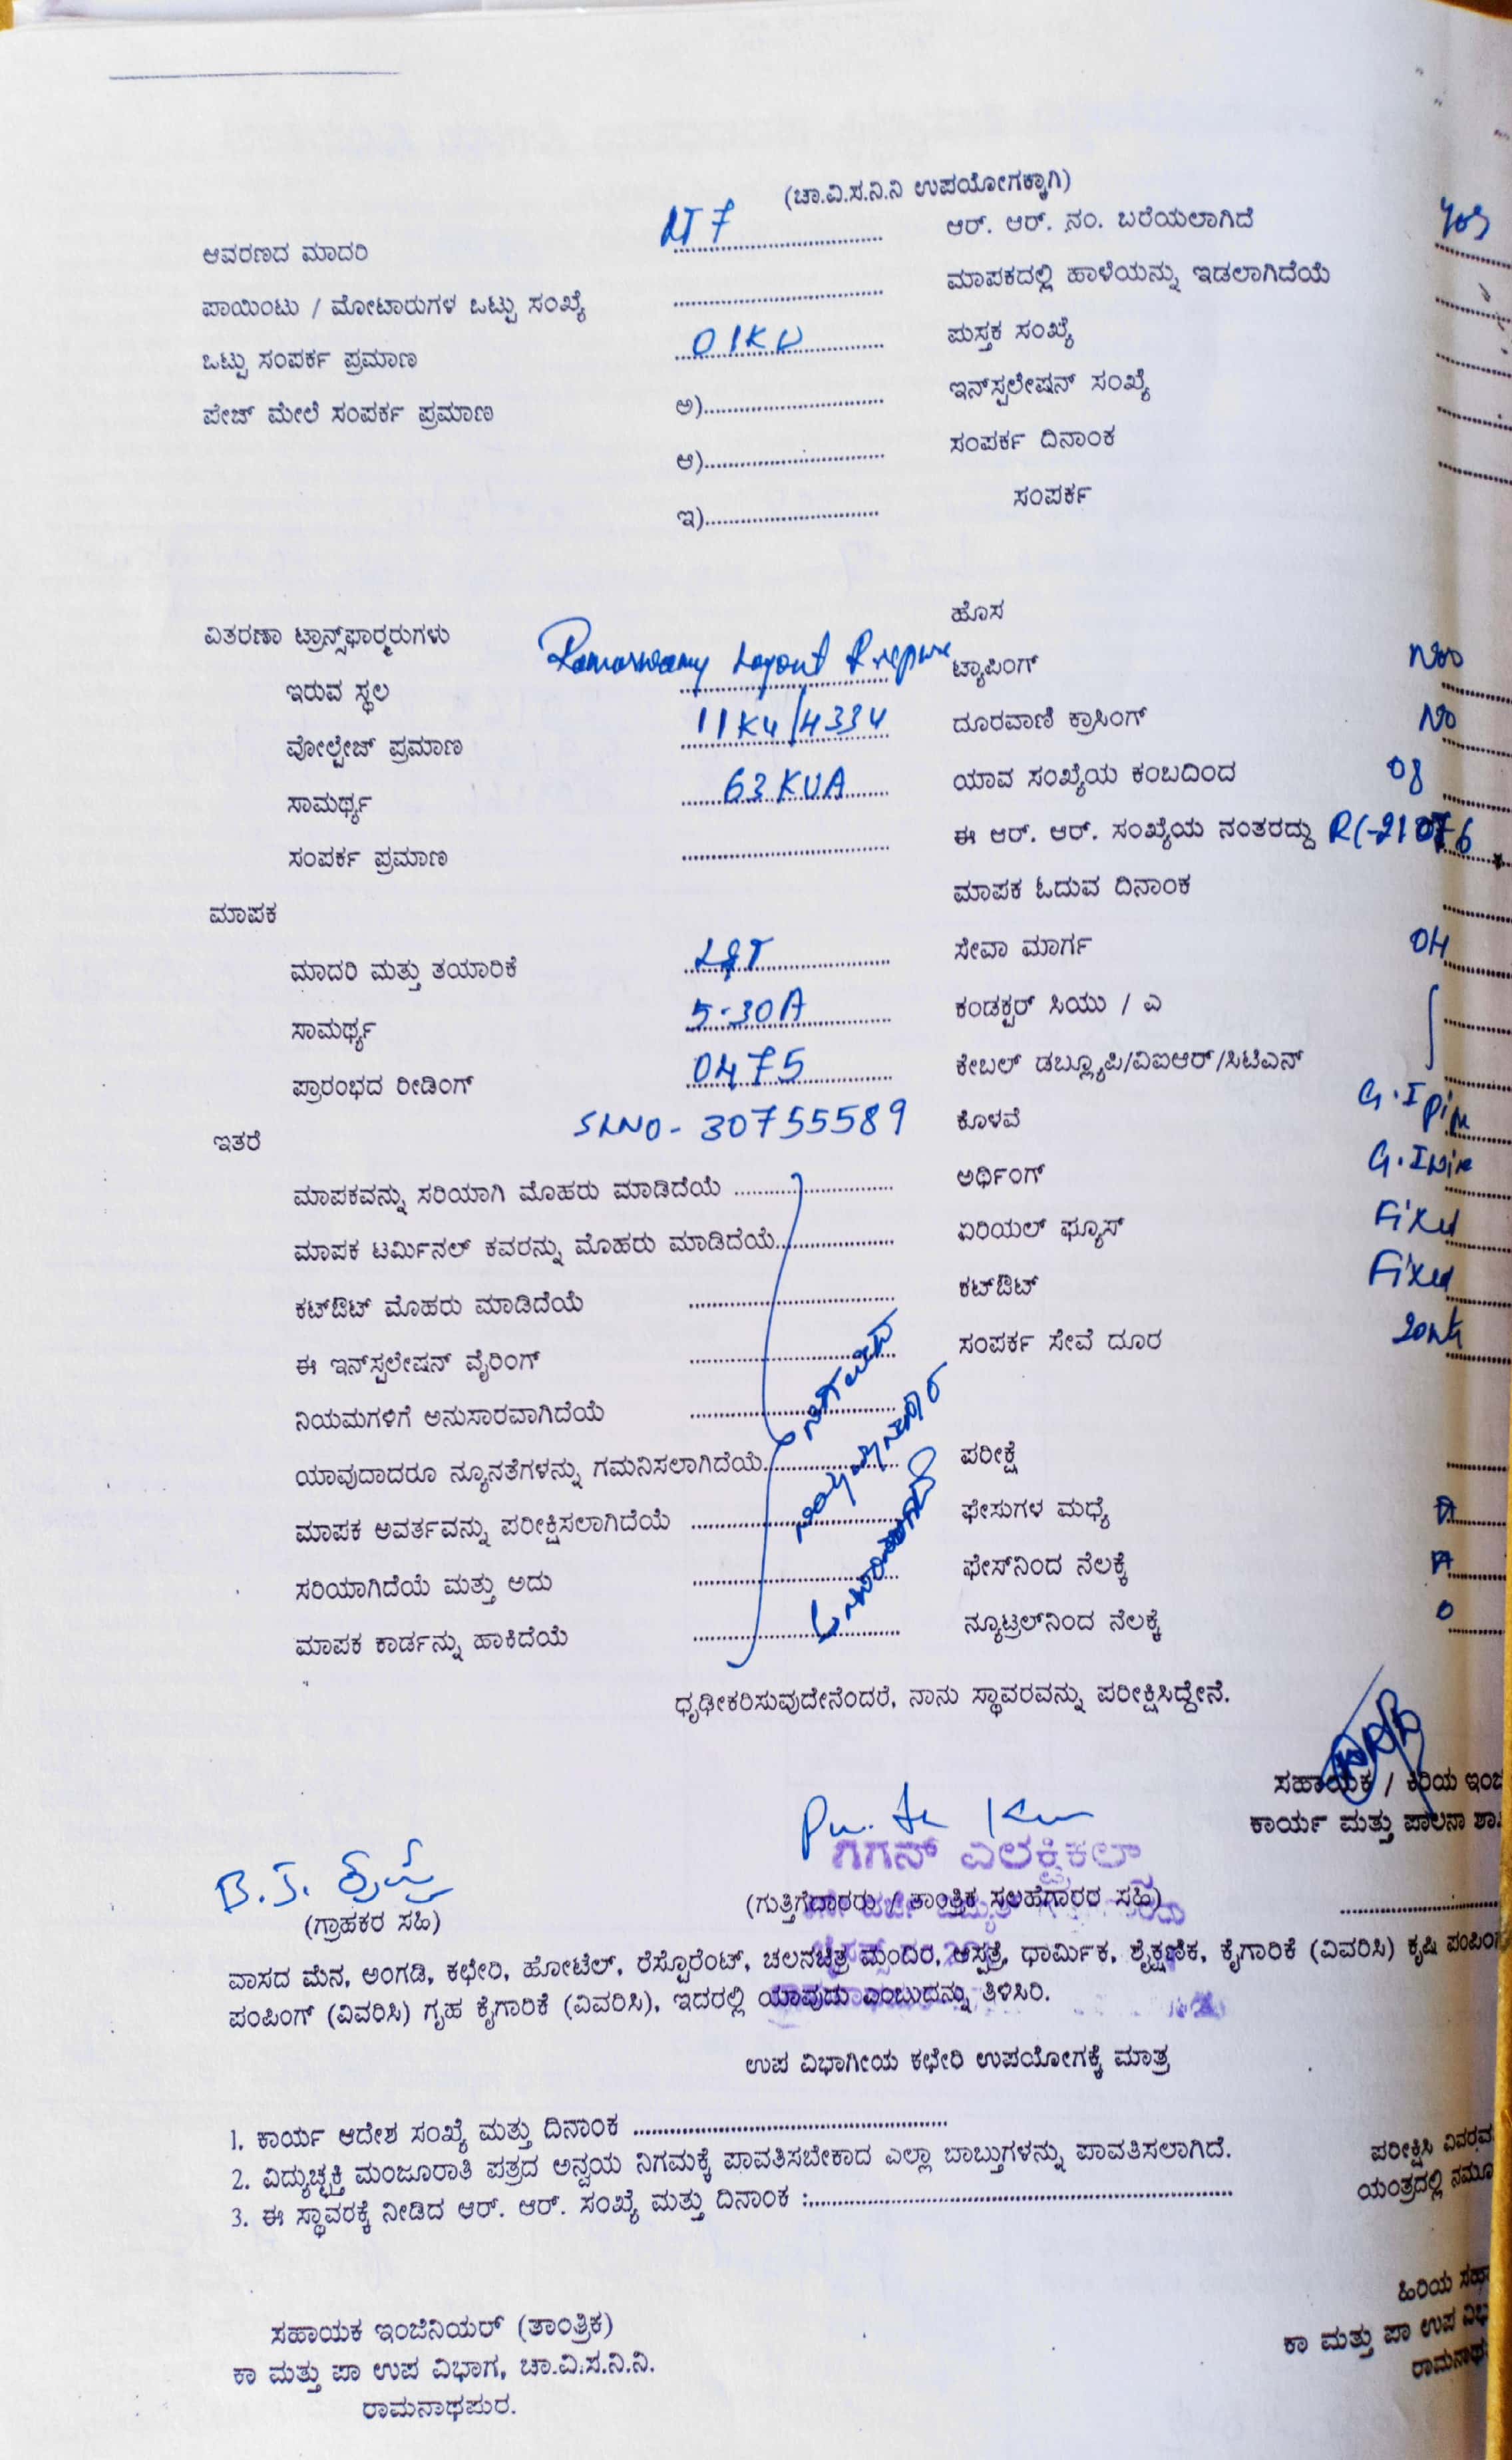 (ಚಾ.ವಿ.ಸ.ನಿ.ನಿ ಉಪಯೋಗಕ್ಕಾಗಿ)
ಆವರಣದ ಮಾದರಿ LT 7 ಆರ್. ಆರ್. ನಂ. ಬರೆಯಲಾಗಿದೆ Yes
ಪಾಯಿಂಟು / ಮೋಟಾರುಗಳ ಒಟ್ಟು ಸಂಖ್ಯೆ ಮಾಪಕದಲ್ಲಿ ಹಾಳೆಯನ್ನು ಇಡಲಾಗಿದೆಯೆ
ಒಟ್ಟು ಸಂಪರ್ಕ ಪ್ರಮಾಣ 01KW ಪುಸ್ತಕ ಸಂಖ್ಯೆ
ಪೇಜ್ ಮೇಲೆ ಸಂಪರ್ಕ ಪ್ರಮಾಣ ಅ) ಇನ್‌ಸ್ಟಲೇಷನ್ ಸಂಖ್ಯೆ
ಆ) ಸಂಪರ್ಕ ದಿನಾಂಕ
ಇ) ಸಂಪರ್ಕ
ವಿತರಣಾ ಟ್ರಾನ್ಸ್‌ಫಾರ್‍ಮರುಗಳು ಹೊಸ
ಇರುವ ಸ್ಥಲ Ramaswamy Layout ಟ್ಯಾಪಿಂಗ್ No
ವೋಲ್ಟೇಜ್ ಪ್ರಮಾಣ 11KV/433V ದೂರವಾಣಿ ಕ್ರಾಸಿಂಗ್ No
ಸಾಮರ್ಥ್ಯ 63 KVA ಯಾವ ಸಂಖ್ಯೆಯ ಕಂಬದಿಂದ 08
ಸಂಪರ್ಕ ಪ್ರಮಾಣ ಈ ಆರ್. ಆರ್. ಸಂಖ್ಯೆಯ ನಂತರದ್ದು
ಮಾಪಕ ಮಾಪಕ ಓದುವ ದಿನಾಂಕ
ಮಾದರಿ ಮತ್ತು ತಯಾರಿಕೆ L&T ಸೇವಾ ಮಾರ್ಗ OH
ಸಾಮರ್ಥ್ಯ 5-30A ಕಂಡಕ್ಟರ್ ಸಿಯು / ಎ
ಪ್ರಾರಂಭದ ರೀಡಿಂಗ್ 0475 ಕೇಬಲ್ ಡಬ್ಲ್ಯೂಪಿ/ವಿಐಆರ್/ಸಿಟಿಎನ್
ಇತರೆ SLNO - 30755589 ಕೊಳವೆ G.I pipe
ಮಾಪಕವನ್ನು ಸರಿಯಾಗಿ ಮೊಹರು ಮಾಡಿದೆಯೆ ಅರ್ಥಿಂಗ್ G.I wire
ಮಾಪಕ ಟರ್ಮಿನಲ್ ಕವರನ್ನು ಮೊಹರು ಮಾಡಿದೆಯೆ ಏರಿಯಲ್ ಫ್ಯೂಸ್ Fixed
ಕಟ್‌ಔಟ್ ಮೊಹರು ಮಾಡಿದೆಯೆ ಕಟ್‌ಔಟ್ Fixed
ಈ ಇನ್‌ಸ್ಟಲೇಷನ್ ವೈರಿಂಗ್ ಸಂಪರ್ಕ ಸೇವೆ ದೂರ
ನಿಯಮಗಳಿಗೆ ಅನುಸಾರವಾಗಿದೆಯೆ
ಯಾವುದಾದರೂ ನ್ಯೂನತೆಗಳನ್ನು ಗಮನಿಸಲಾಗಿದೆಯೆ ಪರೀಕ್ಷೆ
ಮಾಪಕ ಅವರ್ತವನ್ನು ಪರೀಕ್ಷಿಸಲಾಗಿದೆಯೆ ಫೇಸುಗಳ ಮಧ್ಯೆ
ಸರಿಯಾಗಿದೆಯೆ ಮತ್ತು ಅದು ಫೇಸ್‌ನಿಂದ ನೆಲಕ್ಕೆ
ಮಾಪಕ ಕಾರ್ಡನ್ನು ಹಾಕಿದೆಯೆ ನ್ಯೂಟ್ರಲ್‌ನಿಂದ ನೆಲಕ್ಕೆ 0
ಧೃಢೀಕರಿಸುವುದೇನೆಂದರೆ, ನಾನು ಸ್ಥಾವರವನ್ನು ಪರೀಕ್ಷಿಸಿದ್ದೇನೆ.
ಸಹಾಯಕ / ಕಿರಿಯ ಇಂಜಿ
ಕಾರ್ಯ ಮತ್ತು ಪಾಲನಾ ಶಾ
ಗಗನ್ ಎಲೆಕ್ಟ್ರಿಕಲ್ಸ್
B.J.
(ಗ್ರಾಹಕರ ಸಹಿ) (ಗುತ್ತಿಗೆದಾರರು / ತಾಂತ್ರಿಕ ಸಲಹೆಗಾರರ ಸಹಿ)
ವಾಸದ ಮನೆ, ಅಂಗಡಿ, ಕಛೇರಿ, ಹೋಟೆಲ್, ರೆಸ್ಟೊರೆಂಟ್, ಚಲನಚಿತ್ರ ಮಂದಿರ, ಆಸ್ಪತ್ರೆ, ಧಾರ್ಮಿಕ, ಶೈಕ್ಷಣಿಕ, ಕೈಗಾರಿಕೆ (ವಿವರಿಸಿ) ಕೃಷಿ ಪಂಪಿಂಗ್
ಪಂಪಿಂಗ್ (ವಿವರಿಸಿ) ಗೃಹ ಕೈಗಾರಿಕೆ (ವಿವರಿಸಿ), ಇದರಲ್ಲಿ ಯಾವುದು ಎಂಬುದನ್ನು ತಿಳಿಸಿರಿ.
ಉಪ ವಿಭಾಗೀಯ ಕಛೇರಿ ಉಪಯೋಗಕ್ಕೆ ಮಾತ್ರ
1. ಕಾರ್ಯ ಆದೇಶ ಸಂಖ್ಯೆ ಮತ್ತು ದಿನಾಂಕ
2. ವಿದ್ಯುಚ್ಛಕ್ತಿ ಮಂಜೂರಾತಿ ಪತ್ರದ ಅನ್ವಯ ನಿಗಮಕ್ಕೆ ಪಾವತಿಸಬೇಕಾದ ಎಲ್ಲಾ ಬಾಬ್ತುಗಳನ್ನು ಪಾವತಿಸಲಾಗಿದೆ. ಪರೀಕ್ಷಿಸಿ ವಿವರವ
3. ಈ ಸ್ಥಾವರಕ್ಕೆ ನೀಡಿದ ಆರ್. ಆರ್. ಸಂಖ್ಯೆ ಮತ್ತು ದಿನಾಂಕ : ಯಂತ್ರದಲ್ಲಿ ನಮೂ
ಸಹಾಯಕ ಇಂಜಿನಿಯರ್ (ತಾಂತ್ರಿಕ) ಹಿರಿಯ ಸಹಾ
ಕಾ ಮತ್ತು ಪಾ ಉಪ ವಿಭಾಗ, ಚಾ.ವಿ.ಸ.ನಿ.ನಿ. ಕಾ ಮತ್ತು ಪಾ ಉಪ ವಿಭ
ರಾಮನಾಥಪುರ. ರಾಮನಾಥ